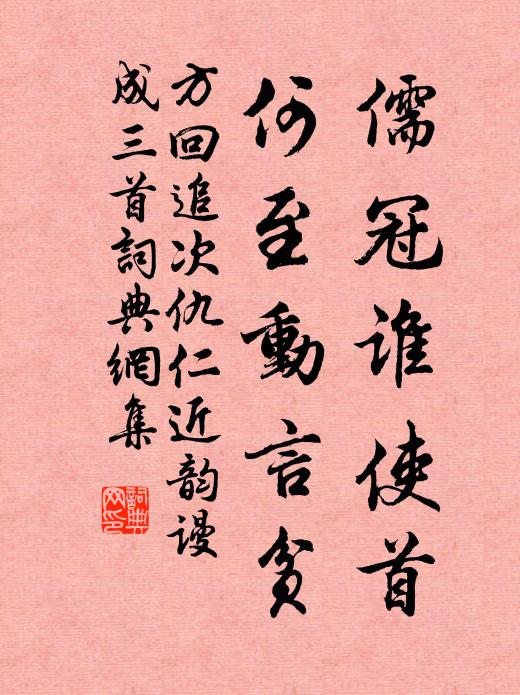 儒冠谁使首
何至動言貧
方回追次仇仁近韵谩
成三首詞典網集
詞典
网印